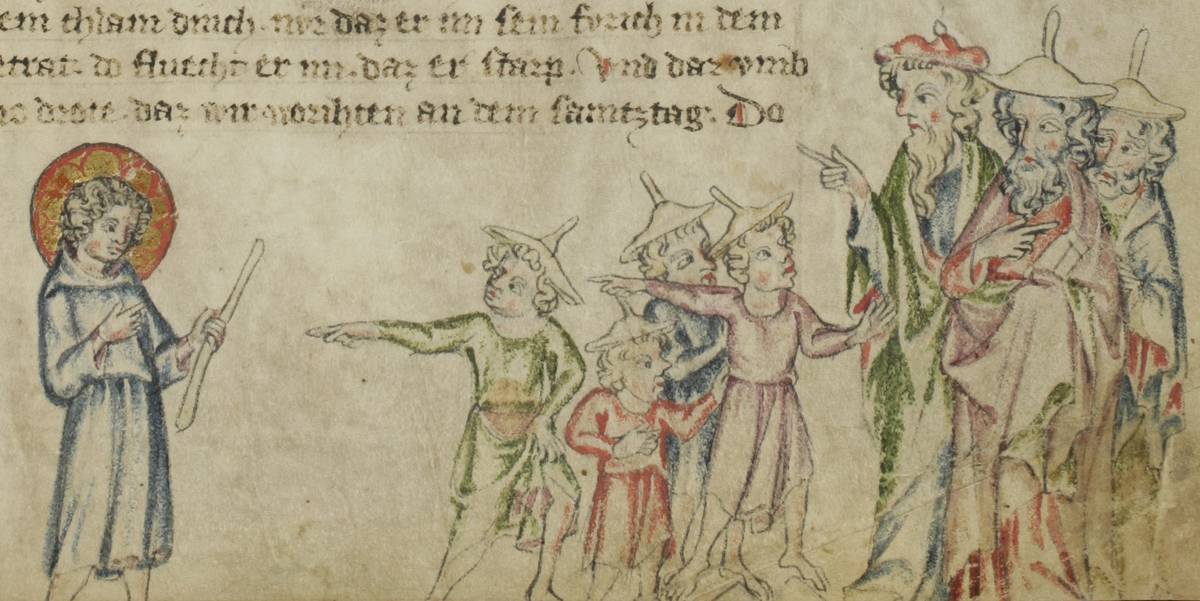 em chlain durch. nur daz er im sein furich in dem
etrat. do fluecht er im. daz er starp. Vnd daz vmb
drote. daz wir worihten an dem samtztag. Do